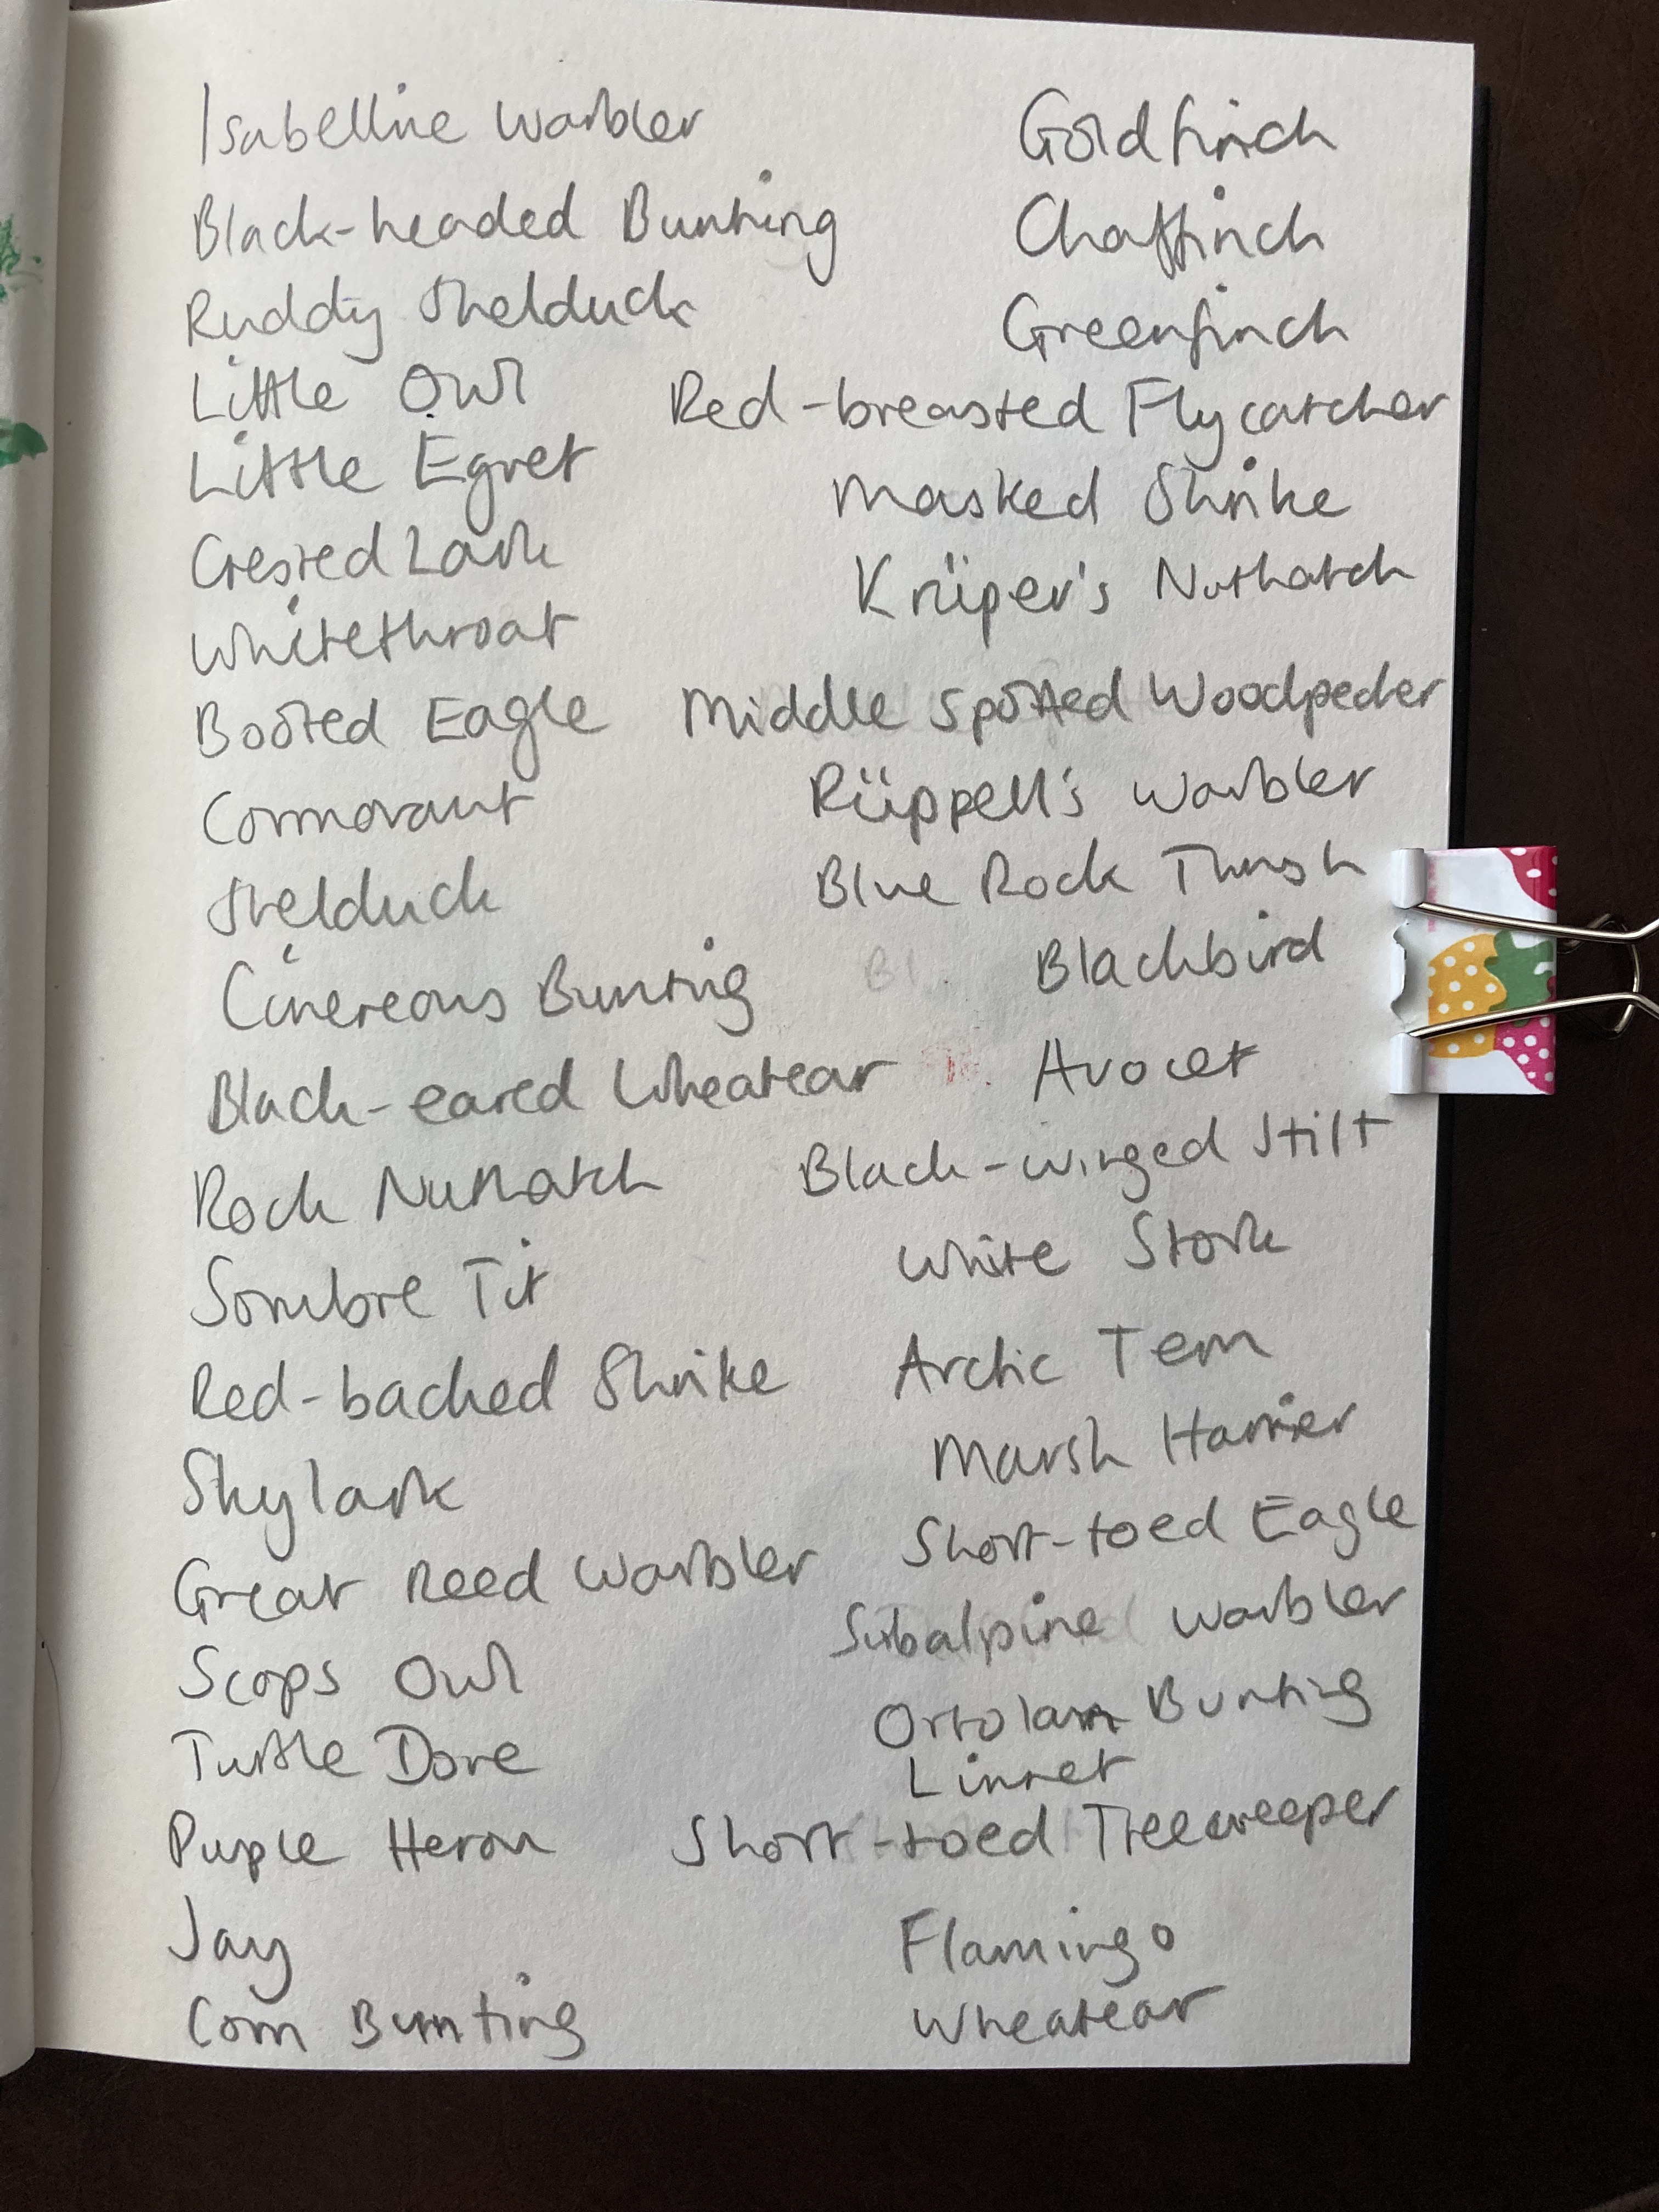 Isabelline Warbler
Black-headed Bunting
Ruddy Shelduck
Little Owl
Little Egret
Crested Lark
Whitethroat
Booted Eagle
Cormorant
Shelduck
Cinereous Bunting
Black-eared Wheatear
Rock Nuthatch
Sombre Tit
Red-backed Shrike
Skylark
Great Reed Warbler
Scops Owl
Turtle Dove
Puple Heron
Jay
Corn Bunting
Goldfinch
Chaffinch
Greenfinch
Red-breasted Flycatcher
Masked Shrike
Krüper's Nuthatch
Middle Spotted Woodpecker
Rüppell's Warbler
Blue Rock Thrush
Blackbird
Avocet
Black-winged Stilt
White Stork
Arctic Tern
Marsh Harrier
Short-toed Eagle
Subalpine Warbler
Ortolan Bunting
Linnet
Short-toed Treecreeper
Flamingo
Wheatear